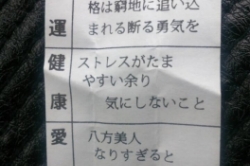 運
格は窮地に追い込
まれる断る勇気を
健康
ストレスがたま
やすい余り
気にしないこと
愛
八方美人
なりすぎると